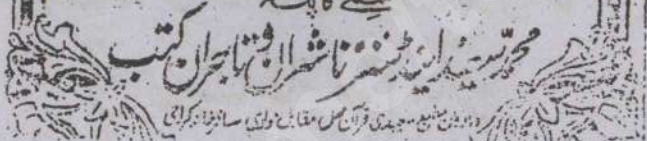 ملنے کا پتہ
محمد سعید اینڈ سنز ناشران و تاجران کتب
قرآن محل مقابل مولوی مسافر خانہ کراچی